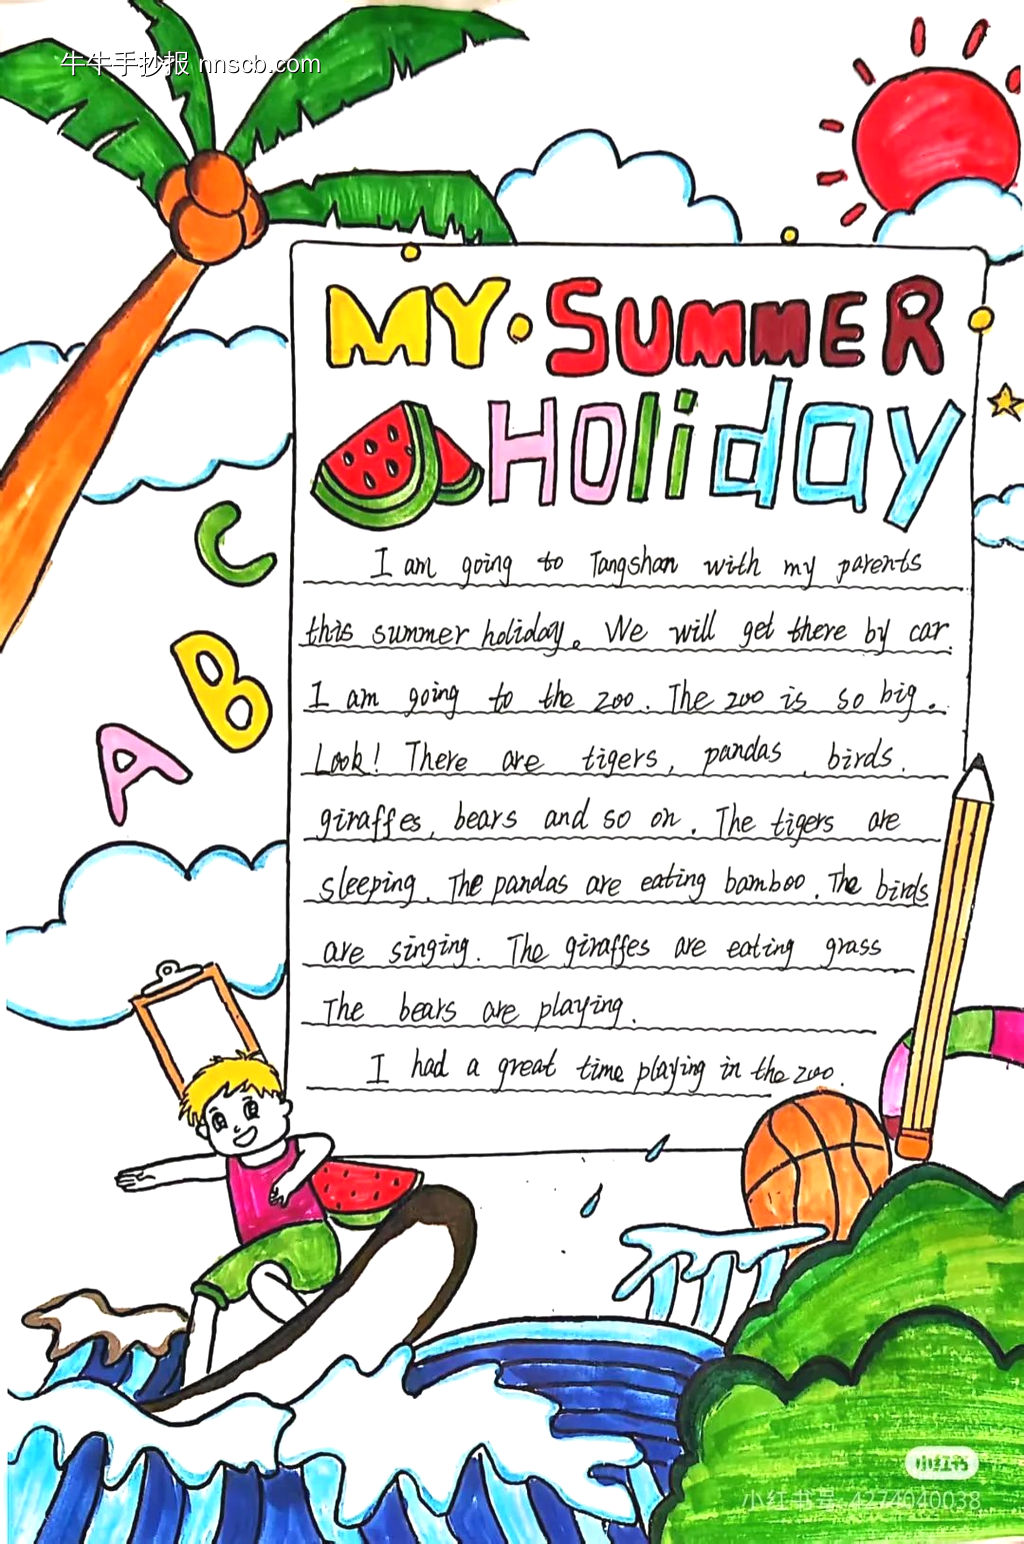 牛牛手抄报 nnscb.com
MY·SUMMER
Holiday
I am going to Tangshan with my parents
this summer holiday。We will get there by car.
I am going to the zoo. The zoo is so big.
Look! There are tigers, pandas, birds.
giraffes, bears and so on. The tigers are
sleeping. The pandas are eating bamboo. The birds
are singing. The giraffes are eating grass
The bears are playing.
I had a great time playing in the zoo.
C
B
A
小红书
小红书号: 4274040038